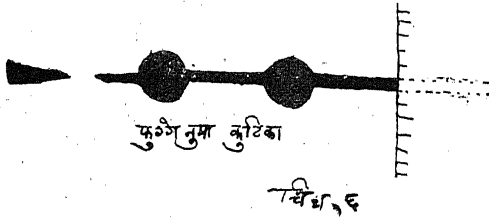 फुग्गे नुमा कुटिका
चित्र, ६